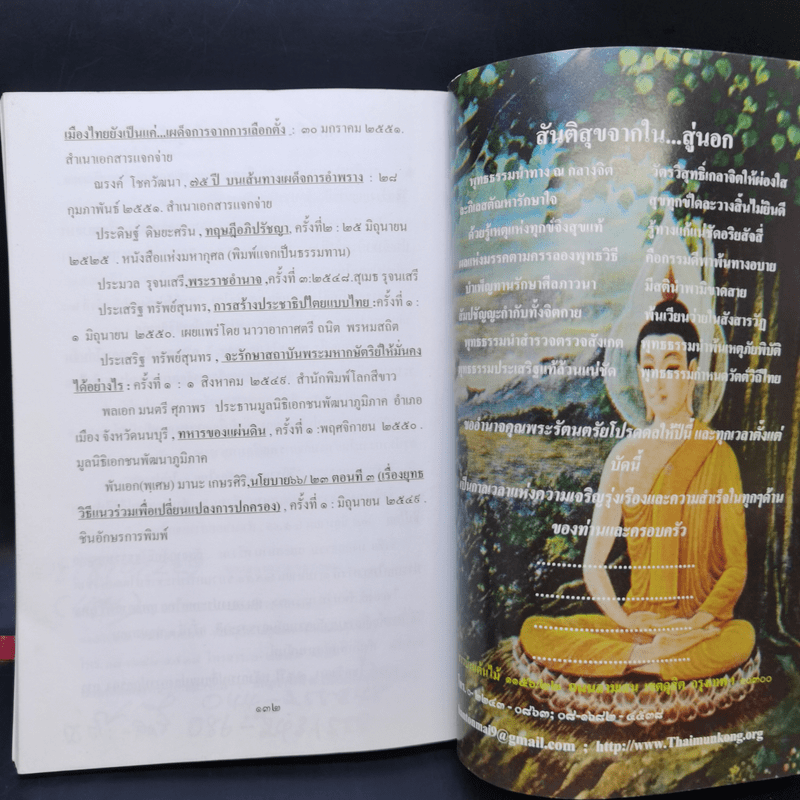 เมืองไทยยังเป็นแค่...เผด็จการจากการเลือกตั้ง : ๓๐ มกราคม ๒๕๕๑.
สำเนาเอกสารแจกจ่าย
ณรงค์ โชควัฒนา , ๗๕ ปี บนเส้นทางเผด็จการอำพราง : ๒๘
กุมภาพันธ์ ๒๕๕๑. สำเนาเอกสารแจกจ่าย
ประดิษฐ์ ดิษยะศริน , ทฤษฎีอภิปรัชญา, ครั้งที่๒ : ๒๕ มิถุนายน
๒๕๒๕ . หนังสือแห่งมหากุศล (พิมพ์แจกเป็นธรรมทาน)
ประมวล รุจนเสรี,พระราชอำนาจ ,ครั้งที่ ๓:๒๕๔๘.สุเมธ รุจนเสรี
ประเสริฐ ทรัพย์สุนทร, การสร้างประชาธิปไตยแบบไทย :ครั้งที่ ๑ :
๑ มิถุนายน ๒๕๕๐. เผยแพร่โดย นาวาอากาศตรี ถนิต พรหมสถิต
ประเสริฐ ทรัพย์สุนทร , จะรักษาสถาบันพระมหากษัตริย์ให้มั่นคง
ได้อย่างไร : ครั้งที่ ๑ : ๑ สิงหาคม ๒๕๔๙. สำนักพิมพ์โลกสีขาว
พลเอก มนตรี ศุภาพร ประธานมูลนิธิเอกชนพัฒนาภูมิภาค อำเภอ
เมือง จังหวัดนนบุรี , ทหารของแผ่นดิน , ครั้งที่ ๑ :พฤศจิกายน ๒๕๕๐ .
มูลนิธิเอกชนพัฒนาภูมิภาค
พันเอก(พิเศษ) มานะ เกษรศิริ,นโยบาย๖๖/ ๒๓ ตอนที่ ๓ (เรื่องยุทธ
วิธีแนวร่วมเพื่อเปลี่ยนแปลงการปกครอง) , ครั้งที่ ๑ : มิถุนายน ๒๕๔๙ .
ชินอักษรการพิมพ์
๑๓๒
สันติสุขจากใน...สู่นอก
พุทธธรรมนำทาง ณ กลางจิต วัตรวิสุทธิ์เกลาจิตให้ผ่องใส
ละกิเลสตัณหารักษาใจ สุขทุกข์ใดละวางสิ้นไม่ยินดี
ด้วยรู้เหตุแห่งทุกข์ถึงสุขแท้ รู้ทางแก้แน่ชัดอริยสัจสี่
ผลแห่งมรรคตามครรลองพุทธวิธี คือกรรมดีพาพ้นทางอบาย
บำเพ็ญทานรักษาศีลภาวนา มีสตินำพามิขาดสาย
สัมปชัญญะกำกับทั้งจิตกาย พ้นเวียนว่ายในสังสารวัฏ
พุทธธรรมนำสำรวจตรวจสังเกต พุทธธรรมนำพ้นเหตุภัยพิบัติ
พุทธธรรมประเสริฐแท้ล้วนแน่ชัด พุทธธรรมกำหนดวัตต์วิถีไทย
ขออำนาจคุณพระรัตนตรัยโปรดดลให้ปีนี้ และทุกเวลาตั้งแต่
บัดนี้
เป็นกาลเวลาแห่งความเจริญรุ่งเรืองและความสำเร็จในทุกๆด้าน
ของท่านและครอบครัว
..............................
..............................
..............................
..............................
เขตดุสิต กรุงเทพฯ ๑๐๓๐๐
๐-๒๒๔๓ - ๐๘๖๓; ๐๘-๑๖๘๒ - ๔๕๓๘
9@gmail.com ; http://www.Thaimunkong.org